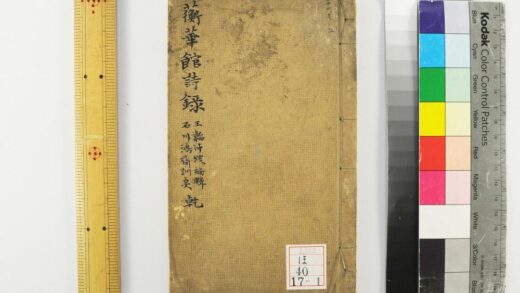 衡華館詩錄
石川鴻齋訓奌
乾
ほ
40
17-1
Kodak Color Control Patches
Blue
Cyan
Green
Yellow
Red
Magenta
White
3/Color
Black